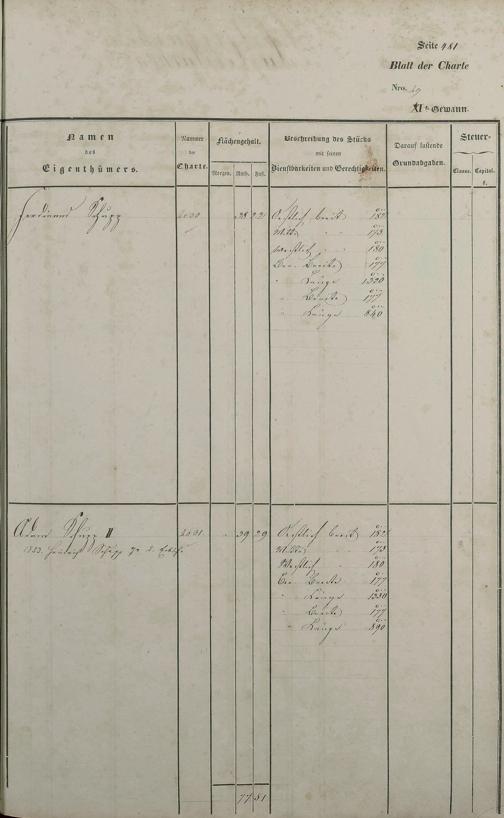 Seite 481
Blatt der Charte
Nro. 29
XIte Gewann.
Namen
des
Eigenthümers.
Nummer
der
Charte.
Flächengehalt.
Morgen. Ruth. Fuß.
Beschreibung des Stücks
mit seinen
Dienstbarkeiten und Gerechtigkeiten.
Darauf lastende
Grundabgaben.
Steuer-
Classe. Capital.
f.
Ferdinand Schupp
38 22
Oestlich breit 182
Mitte 173
Westlich 180
Ber. Breite 177
" Länge 1320
" Breite 177
" Länge 840
Adam Schupp II
39 29
Oestlich breit 182
Mitte 173
Westlich 180
Ber. Breite 177
" Länge 1330
" Breite 177
" Länge 890
77 51